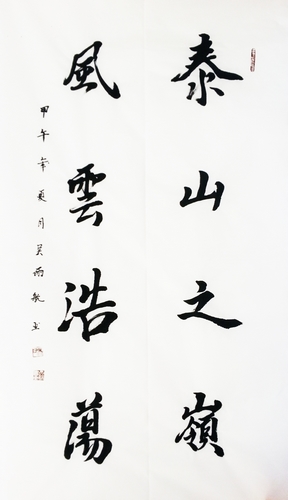 泰山之嶺
風雲浩蕩
甲午年夏月吳雨敏書